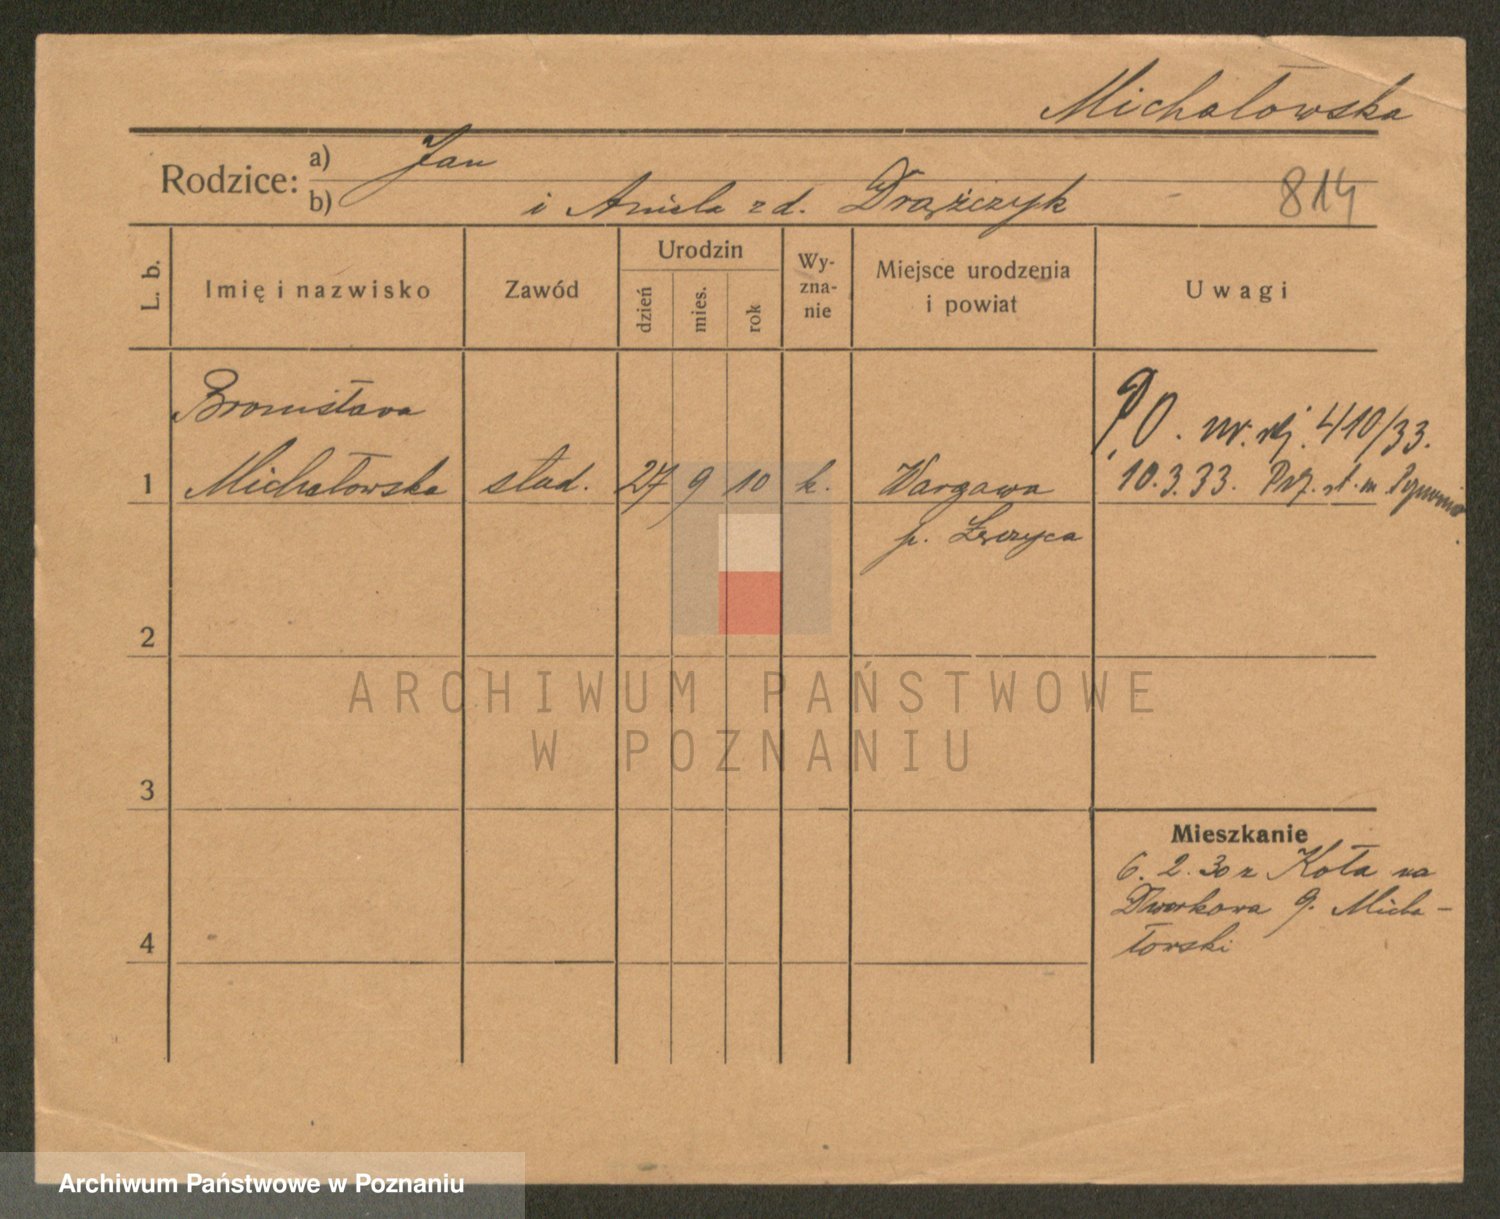 Michałowska
Rodzice: a) Jan
b) i Aniela z d. Drążczyk
814
L. b.
Imię i nazwisko
Zawód
Urodzin
dzień
mies.
rok
Wy-
zna-
nie
Miejsce urodzenia
i powiat
Uwagi
Bronisława
1 Michałowska stud. 27 9 10 k. Wargawa
p. Łęczyca
P.O. nr. rej. 410/33.
10.3.33. st. m
2
3
4
Mieszkanie
6. 2. 30 z Koła na
Dworkowa 9. Micha-
łowski
ARCHIWUM PAŃSTWOWE
W POZNANIU
Archiwum Państwowe w Poznaniu